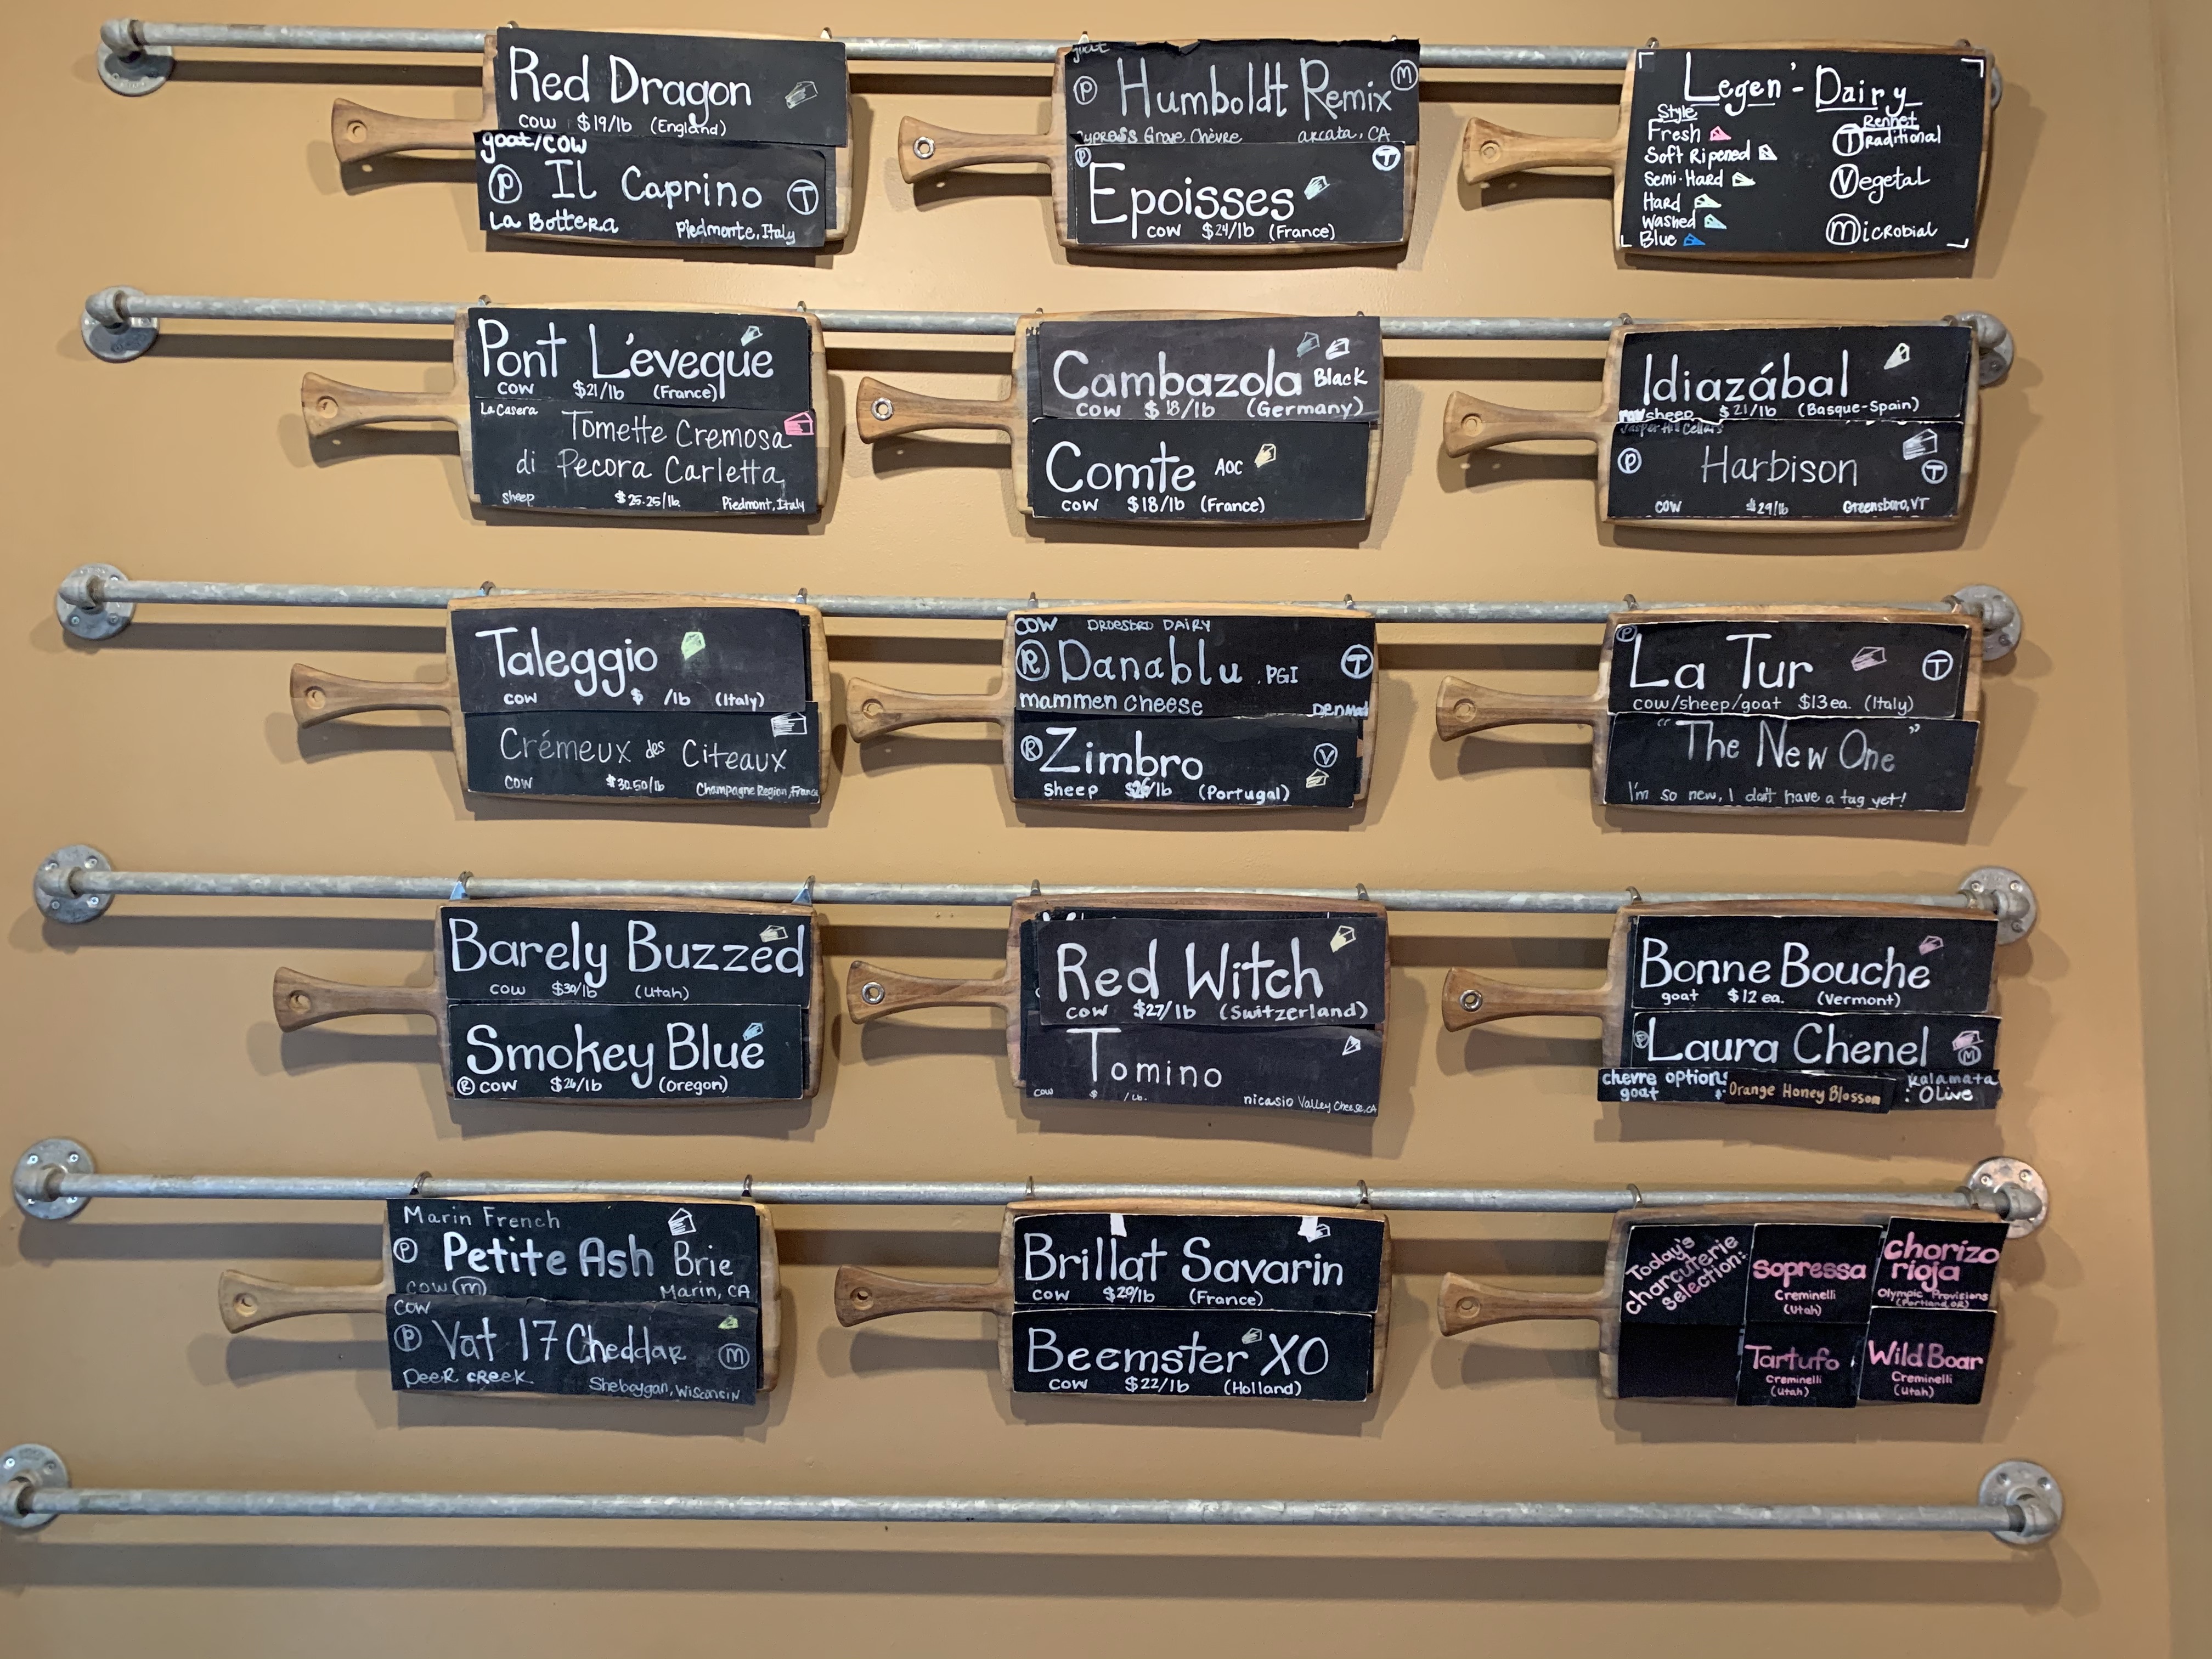 Red Dragon
cow $19/lb (England)
goat/cow
P Il Caprino T
La Bottera Piedmonte, Italy
goat
P Humboldt Remix M
ypress Grove Chèvre arcata, CA
P T
Epoisses
cow $24/lb (France)
Legen'-Dairy
Style Rennet
Fresh Traditional
Soft Ripened
Semi-Hard Vegetal
Hard
Washed
Blue Microbial
Pont L'eveque
cow $21/lb (France)
La Casera
Tomette Cremosa
di Pecora Carletta
sheep $25.25/lb. Piedmont, Italy
Cambazola Black
cow $18/lb (Germany)
Comte AOC
cow $18/lb (France)
Idiazábal
raw sheep $21/lb (Basque-Spain)
Jasper Hill Cellars
P Harbison T
cow $29/lb Greensboro, VT
Taleggio
cow $ /lb (Italy)
Crémeux des Citeaux
cow $30.50/lb Champagne Region, France
cow DROESBRO DAIRY
R Danablu PGI T
mammen cheese Denma
R Zimbro V
sheep /lb (Portugal)
P
La Tur T
cow/sheep/goat $13 ea. (Italy)
"The New One"
I'm so new, I don't have a tag yet!
Barely Buzzed
cow $30/lb (Utah)
Smokey Blue
R cow $26/lb (Oregon)
Red Witch
cow $27/lb (Switzerland)
Tomino
cow $ /lb. nicasio Valley Cheese, CA
Bonne Bouche
goat $12 ea. (Vermont)
P Laura Chenel M
chevre options: Orange Honey Blossom kalamata
goat $ : Olive
Marin French
P Petite Ash Brie
cow m Marin, CA
cow
P Vat 17 Cheddar m
Deer creek Sheboygan, Wisconsin
Brillat Savarin
cow $29/lb (France)
Beemster XO
cow $22/lb (Holland)
Today's
charcuterie
selection:
Sopressa
Creminelli
(Utah)
chorizo
rioja
Olympic Provisions
(Portland, OR)
Tartufo
Creminelli
(Utah)
Wild Boar
Creminelli
(Utah)